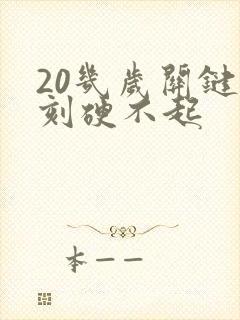 20幾歲關鍵
刻硬不起
本一一